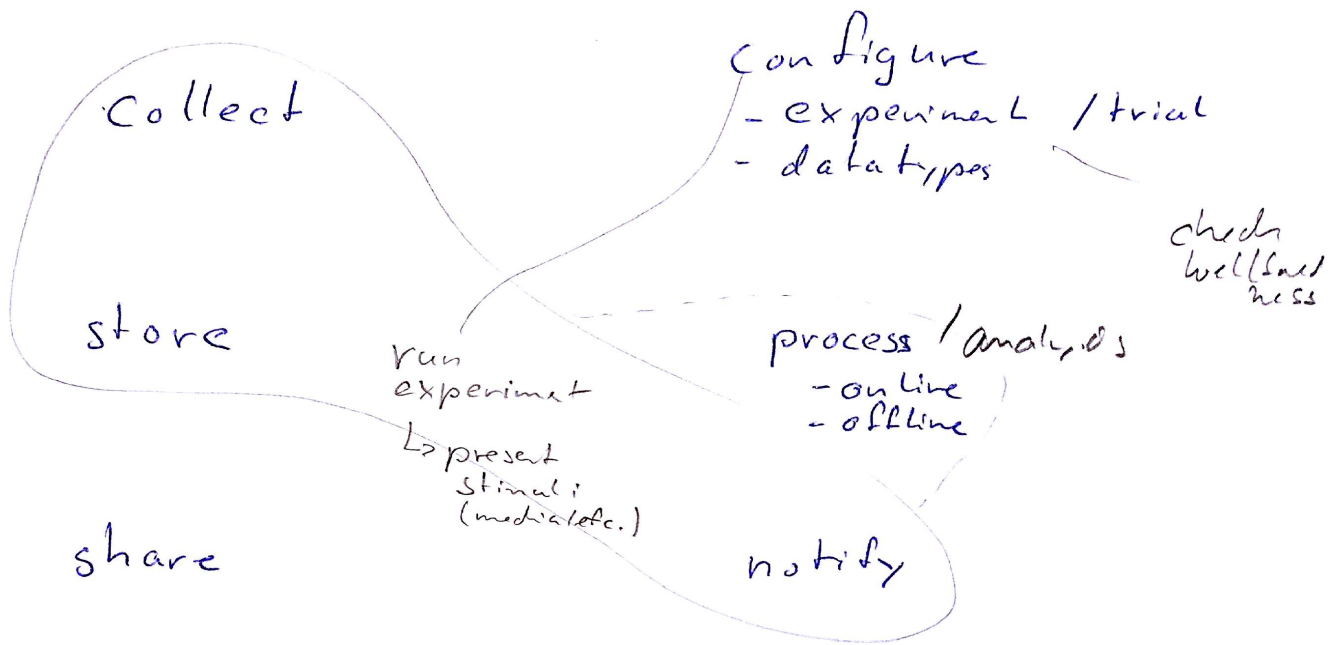 Collect
configure
- experiment / trial
- datatypes
check
wellformed
ness
store
run
experimet
↳ present
stimuli
(media/etc.)
process / analysis
- online
- offline
share
notify